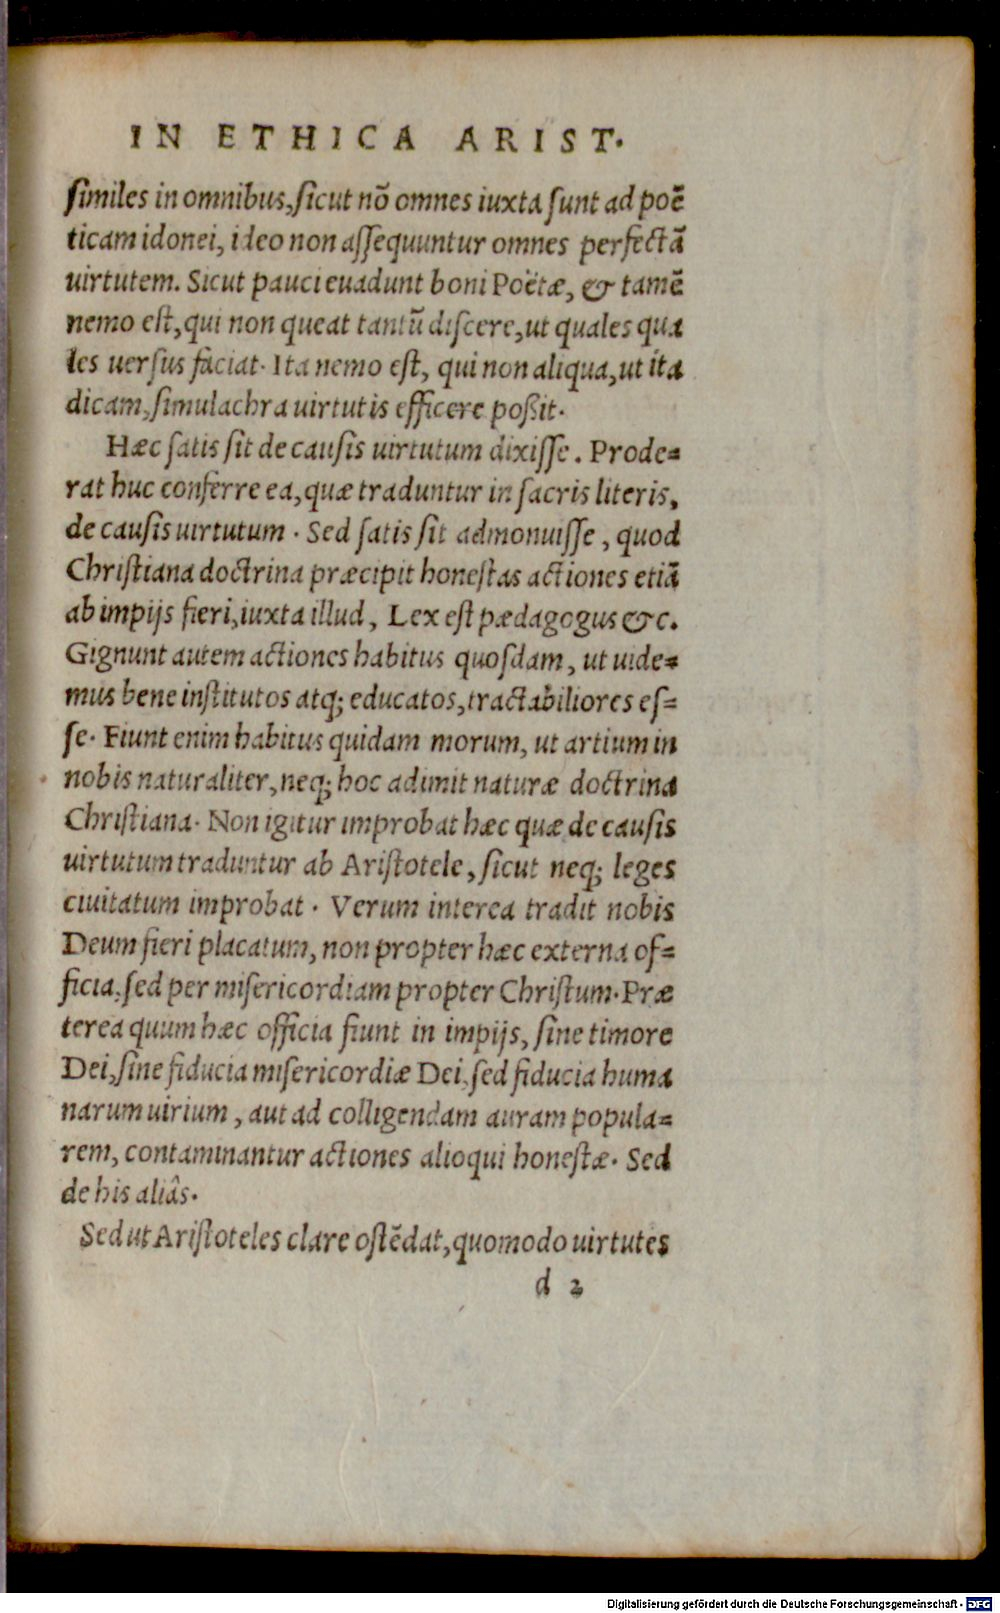 IN ETHICA ARIST.
similes in omnibus, sicut nõ omnes iuxta sunt ad poẽ
ticam idonei, ideo non assequuntur omnes perfectã
uirtutem. Sicut pauci euadunt boni Poëtæ, & tamẽ
nemo est, qui non queat tantũ discere, ut quales qua
les uersus faciat. Ita nemo est, qui non aliqua, ut ita
dicam, simulachra uirtutis efficere poßit.
Hæc satis sit de causis uirtutum dixisse. Prode=
rat huc conferre ea, quæ traduntur in sacris literis,
de causis uirtutum. Sed satis sit admonuisse, quod
Christiana doctrina præcipit honestas actiones etiã
ab impijs fieri, iuxta illud, Lex est pædagogus &c.
Gignunt autem actiones habitus quosdam, ut uide=
mus bene institutos atq; educatos, tractabiliores es=
se. Fiunt enim habitus quidam morum, ut artium in
nobis naturaliter, neq; hoc adimit naturæ doctrina
Christiana. Non igitur improbat hæc quæ de causis
uirtutum traduntur ab Aristotele, sicut neq; leges
ciuitatum improbat. Verum interea tradit nobis
Deum fieri placatum, non propter hæc externa of=
ficia, sed per misericordiam propter Christum. Præ
terea quum hæc officia fiunt in impijs, sine timore
Dei, sine fiducia misericordiæ Dei, sed fiducia huma
narum uirium, aut ad colligendam auram popula=
rem, contaminantur actiones alioqui honestæ. Sed
de his aliâs.
Sed ut Aristoteles clare ostẽdat, quomodo uirtutes
d 2
Digitalisierung gefördert durch die Deutsche Forschungsgemeinschaft - DFG